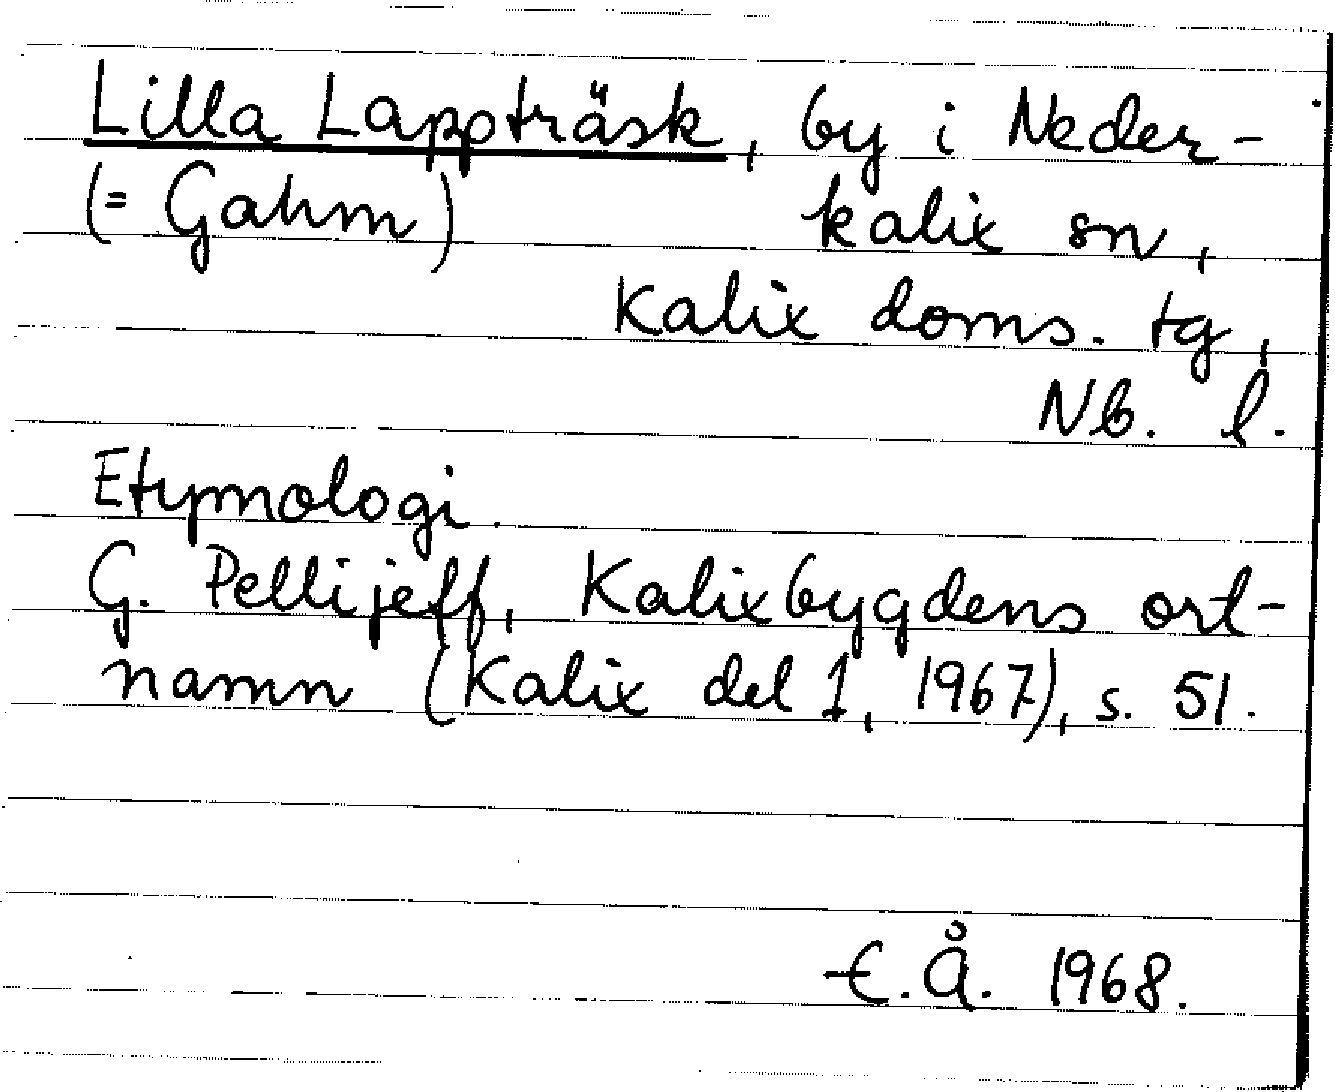 Lilla Lappträsk, by i Neder-
(= Gahm) kalix sn,
Kalix doms. tg,
Nb. l.
Etymologi.
G. Pellijeff, Kalixbygdens ort-
namn (Kalix del 1, 1967), s. 51.
E.Å. 1968.